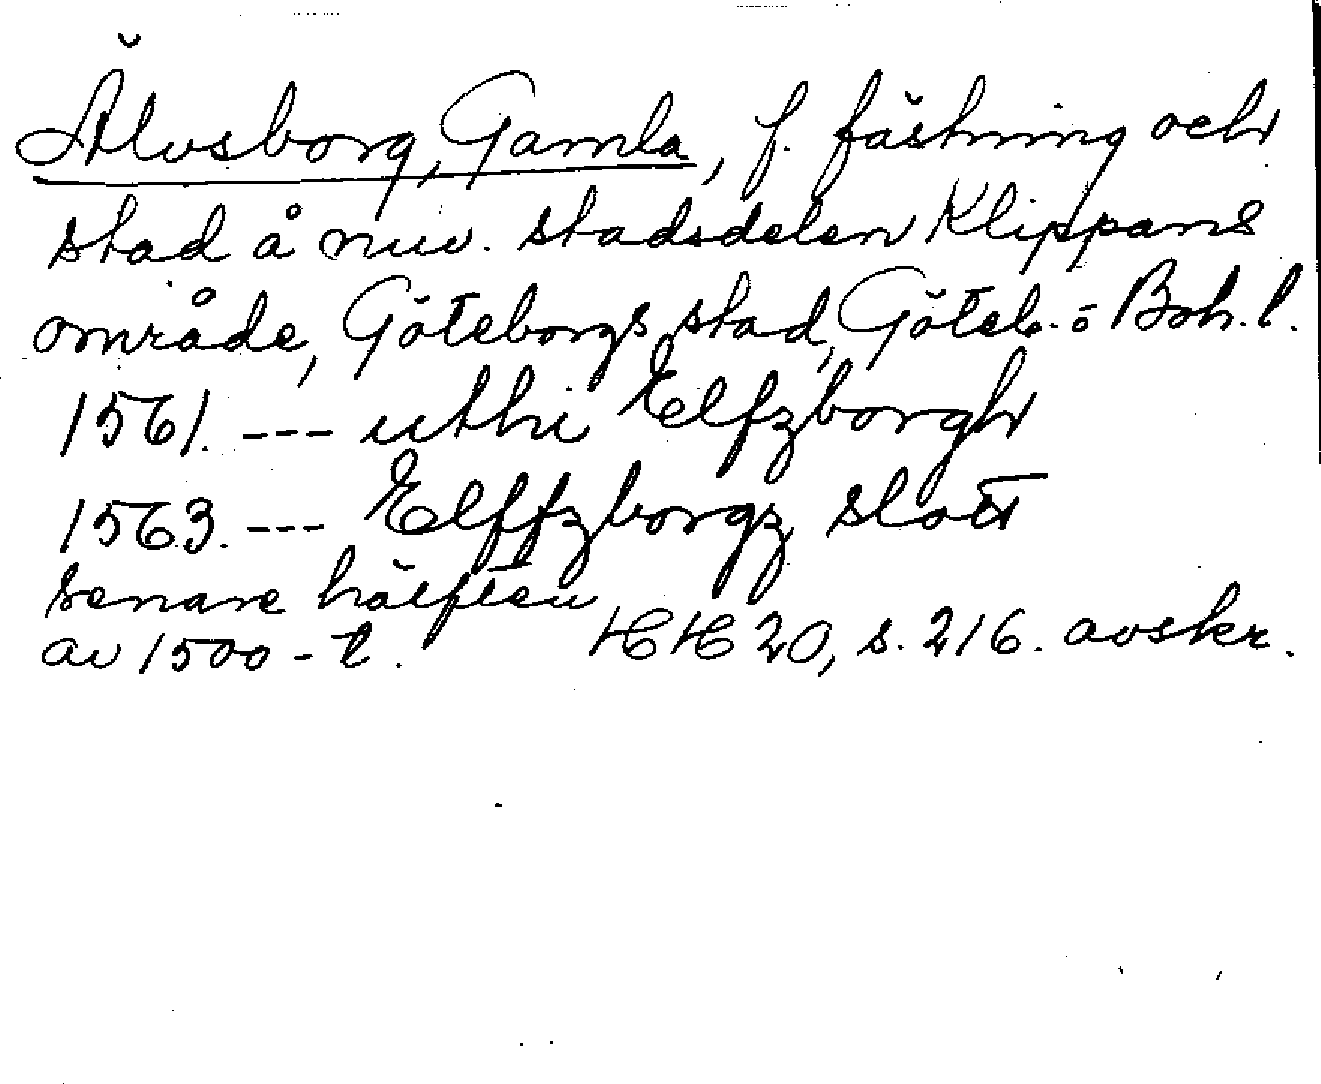 Älvsborg, Gamla, f. fästning och
stad å nuv. stadsdelen Klippans
område, Göteborgs stad, Göteb. o Boh. l.
1561. --- uthi Elfzborgh
1563. --- Elffzborgz slott
senare hälften
av 1500-t. HH 20, s. 216. avskr.